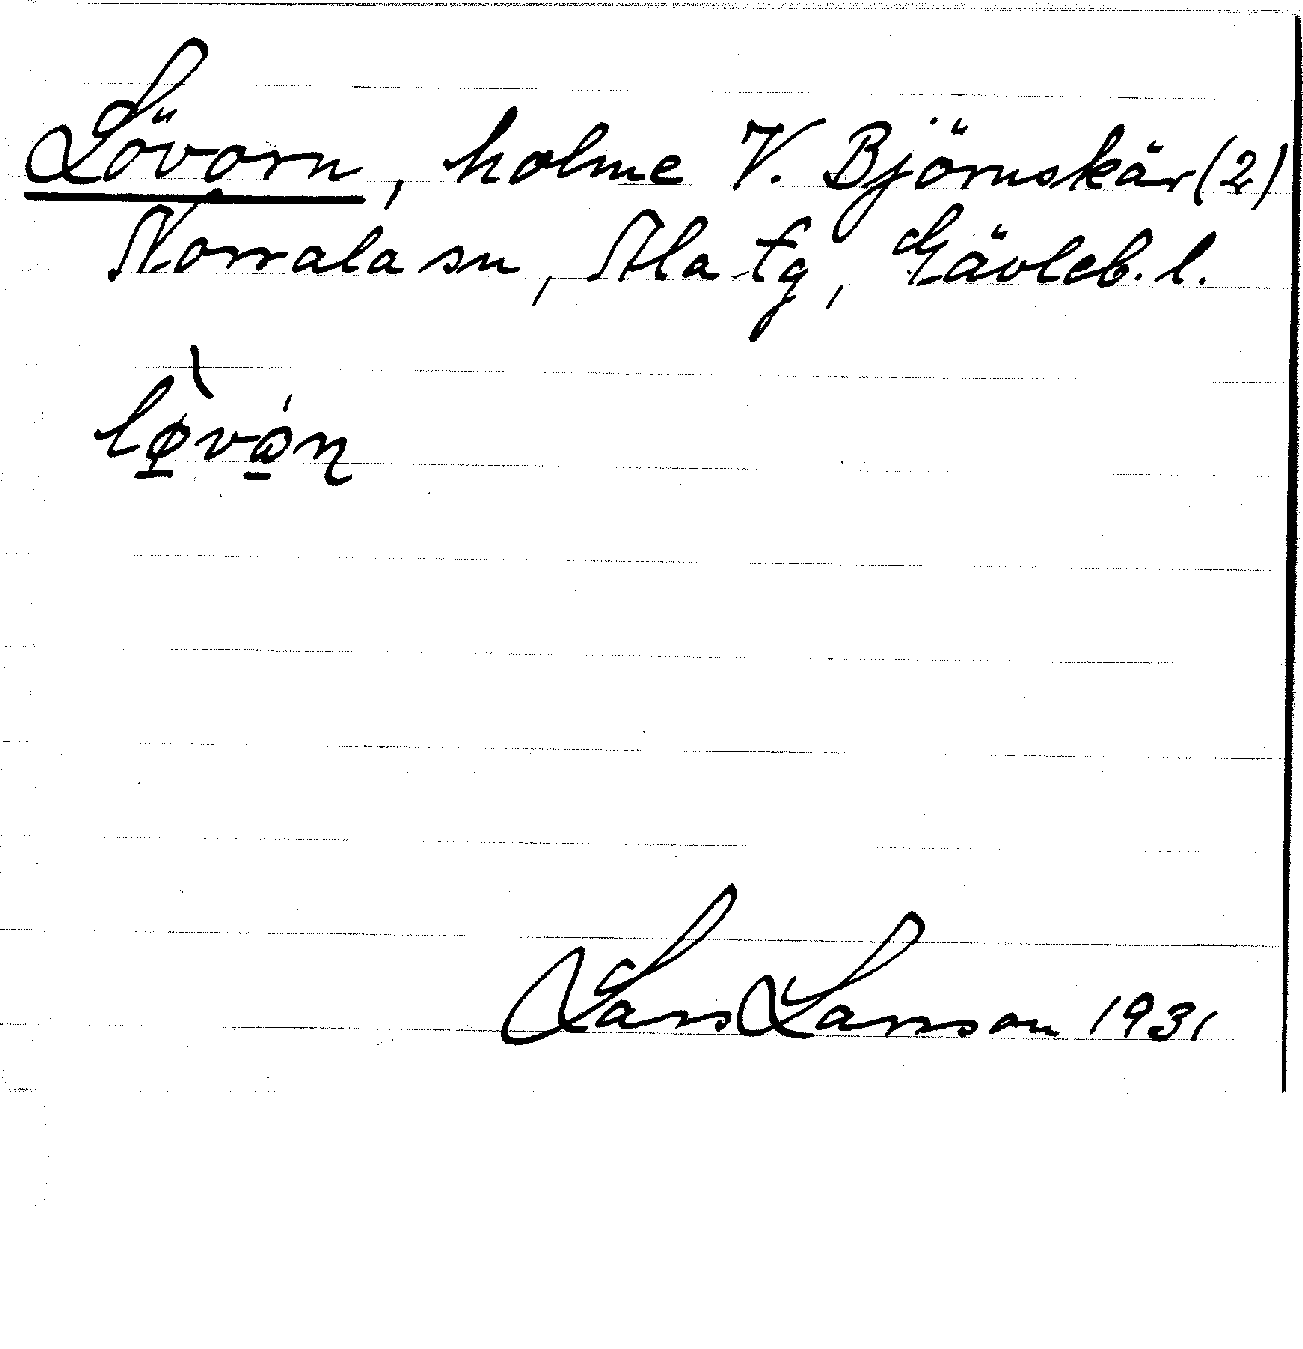 Lövorn, holme V. Björnskär (2)
Norrala sn, Ala tg, Gävleb. l.
lø̱̀vɷ̱́ɳ
Lars Larsson 1931